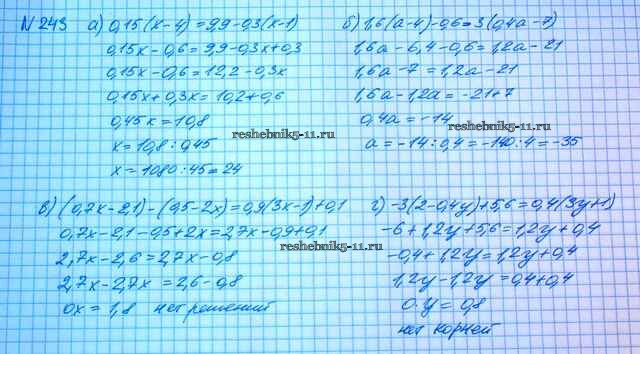 N 243 а) 0,15(x-4)=9,9-0,3(x-1)
0,15x-0,6=9,9-0,3x+0,3
0,15x-0,6=12,2-0,3x
0,15x+0,3x=10,2+0,6
0,45x=10,8
x=10,8:0,45
x=1080:45=24
б) 1,6(a-4)-0,6=3(0,4a-7)
1,6a-6,4-0,6=1,2a-21
1,6a-7=1,2a-21
1,6a-1,2a=-21+7
0,4a=-14
a=-14:0,4=-140:4=-35
reshebnik5-11.ru
reshebnik5-11.ru
в) (0,7x-2,1)-(0,5-2x)=0,9(3x-1)+0,1
0,7x-2,1-0,5+2x=2,7x-0,9+0,1
2,7x-2,6=2,7x-0,8
2,7x-2,7x=2,6-0,8
0x=1,8 нет решений
reshebnik5-11.ru
г) -3(2-0,4y)+5,6=0,4(3y+1)
-6+1,2y+5,6=1,2y+0,4
-0,4+1,2y=1,2y+0,4
1,2y-1,2y=0,4+0,4
0·y=0,8
нет корней